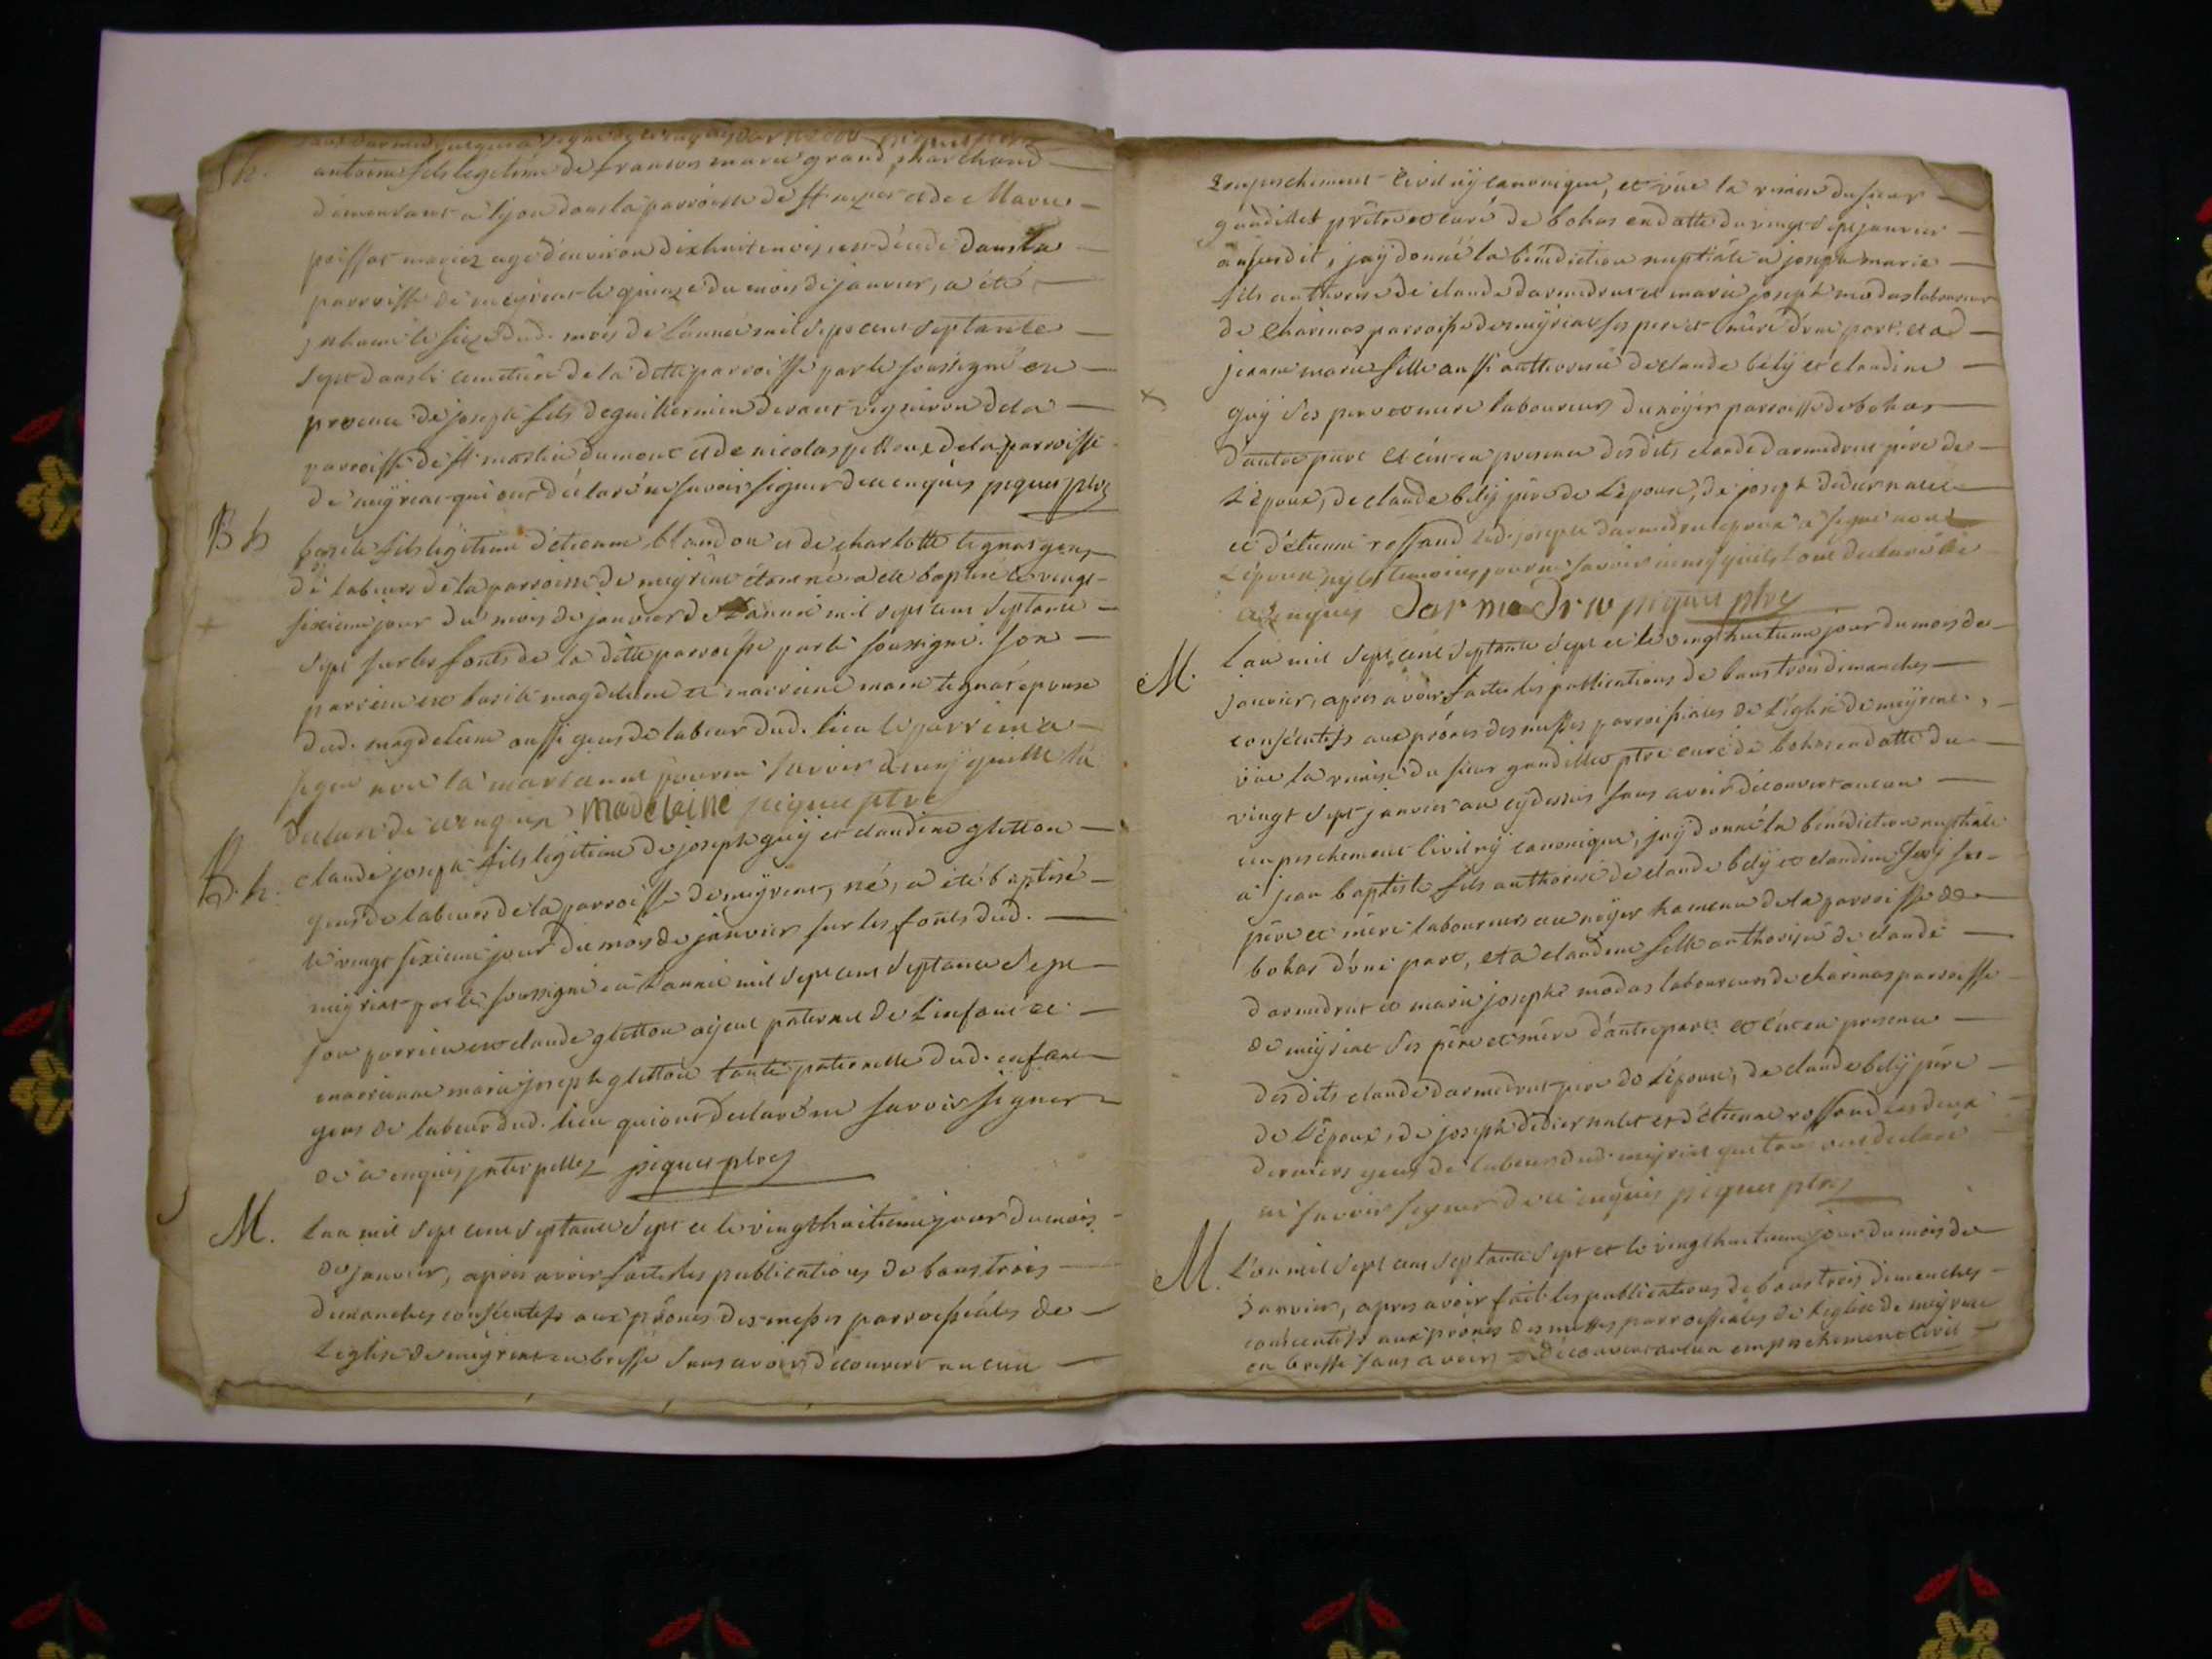 Sh. antoine fils légitime de francois marie grand marchand
demeurant a lyon dans la parroisse de st nizier et de Marie
poissat mariez agé d'environ dixhuit mois est décédé dans la
parroisse de meyriat le quinze du mois de janvier, a été
inhumé le seize dud. mois de l'année mil sept cent septante
sept dans le cimetiere de la ditte parroisse par le soussigné en
presence de joseph fils de guillermin devant vigneron de la
parroisse de st martin du mont et de nicolas pelloux de la parroisse
de meyriat qui ont déclaré ne savoir signer de ce enquis piquet ptre
Bh basile fils légitime d'etienne blandon et de charlotte tignat gens
de labeurs de la parroisse de meyriat étant né a été baptisé le vingt
sixieme jour du mois de janvier de l'année mil sept cent septante
sept sur les fonts de la ditte parroisse par le soussigné. son
parrien est basile magdelene et marriene marie tignat épouse
dud. magdelene aussi gens de labeur dud. lieu le parrien a
signé non la marienne pour ne savoir ainsy quelle l'a
declaré de ce enquise Madelaine piquet ptre
B.h. claude joseph fils légitime de joseph guÿ et claudine gletton
gens de labeurs de la parroisse de meyriat, né, a été baptisé
le vingt sixieme jour du mois de janvier sur les fonts dud.
meyriat par le soussigné en l'année mil sept cent septante sept
son parrien est claude gletton ayeul paternel de l'enfant et
marrienne marie joseph gletton tante paternelle dud. enfant
gens de labeur dud. lieu qui ont declaré ne savoir signer
de ce enquis interpellez piquet ptre
M. L'an mil sept cent septante sept et le vingthuitieme jour du mois
de janvier, apres avoir faites les publications de bans trois
dimanches consécutifs aux prônes des messes parroissiales de
L'eglise de meyriat en bresse sans avoir découvert aucun
Empeschement civil nÿ canonique, et vüe la remise du sieur
gaudillet prêtre et curé de bohas en datte du vingt sept janvier
aususdit, jaÿ donné la bénédiction nuptiale a joseph marie
fils authorisé de claude darmedrut et marie joseph modas laboureur
de Charinas parroisse de meÿriat ses pere et mere d'une part. et a
jeanne marie fille aussi authorisée de claude bélÿ et claudine
guÿ ses pere et mere laboureurs du noÿer parroisse de bohas
d'autre part et c'en en presence des dits claude darmedrut pére de
L'époux, de claude belÿ pere de L'épouse, de joseph didier nalet
et d'étienne rossand led. joseph darmedru époux a signé non
L'épouse nÿ les temoins pour ne savoir ainsy quils l'ont declaré de
ce enquis Darmedru piquet ptre
M. L'an mil sept cent septante sept et le vingthuitieme jour du mois de
janvier, après avoir faites les publications de bans trois dimanches
consécutifs aux prônes des messes parroissiales de L'église de meÿriat,
vüe la remise du sieur gaudillet ptre curé de bohas en datte du
vingt sept janvier an cÿdessus sans avoir découvert aucun
empeschement civil nÿ canonique, jaÿ donné la bénédiction nuptiale
a jean baptiste fils authorisé de claude belÿ et claudine guÿ ses
pére et mére laboureurs au noÿer hameau de la parroisse de
bohas d'une part, et a claudine fille authorisée de claude
darmedrut et marie josephe modas laboureurs de charinas parroisse
de meÿriat ses pére et mére d'autre part et c'en en presence
des dits claude darmedrut pere de L'épouse, de claude belÿ pére
de L'époux, de joseph didier nalet et d'étienne rossand ces deux
derniers gens de labeurs dud. meÿriat qui tous ont declaré
ne savoir signer de ce enquis piquet ptre
M. L'an mil sept cent septante sept et le vingthuitieme jour du mois de
Janvier, apres avoir fait les publications de bans trois dimanches
consécutifs aux prônes des messes parroissiales de L'eglise de meÿriat
en bresse sans avoir découvert aucun empeschement civil